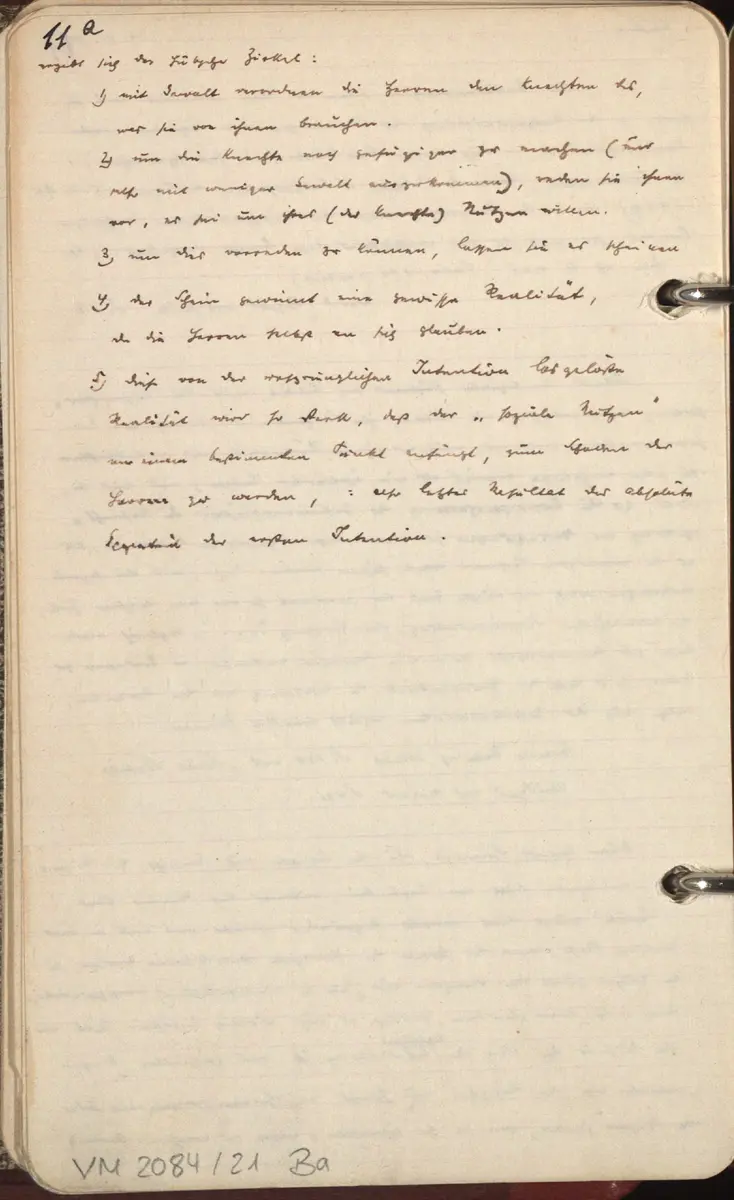 11a
ergibt sich der hübsche Zirkel:
1) mit Gewalt verordnen die Herren den Knechten das,
was sie von ihnen brauchen.
2) um die Knechte noch gefügiger zu machen (und
also mit weniger Gewalt auszukommen), reden sie ihnen
vor, es sei um ihres (der Knechte) Nutzen willen.
3) um dies vorreden zu können, lassen sie es scheinen
4) der Schein gewinnt eine gewisse Realität,
da die Herren selbst an sich glauben.
5) diese von der ursprünglichen Intention losgelöste
Realität wird so stark, daß der „soziale Nutzen"
an einem bestimmten Punkt anfängt, zum Schaden der
Herren zu werden, : also letztes Resultat das absolute
Gegenteil der ersten Intention.
VM 2084/21 Ba